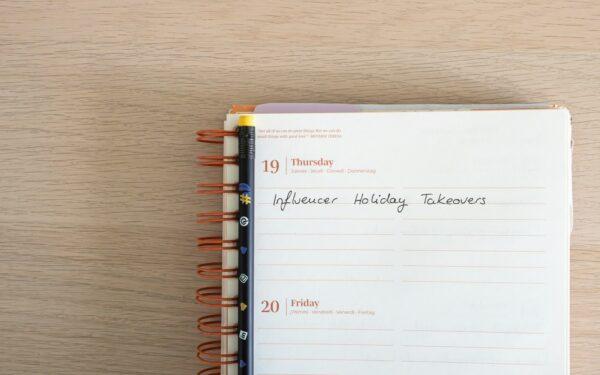 19 Thursday
Jueves · Jeudi · Giovedì · Donnerstag
Influencer Holiday Takeovers
20 Friday
Viernes · Vendredi · Venerdì · Freitag